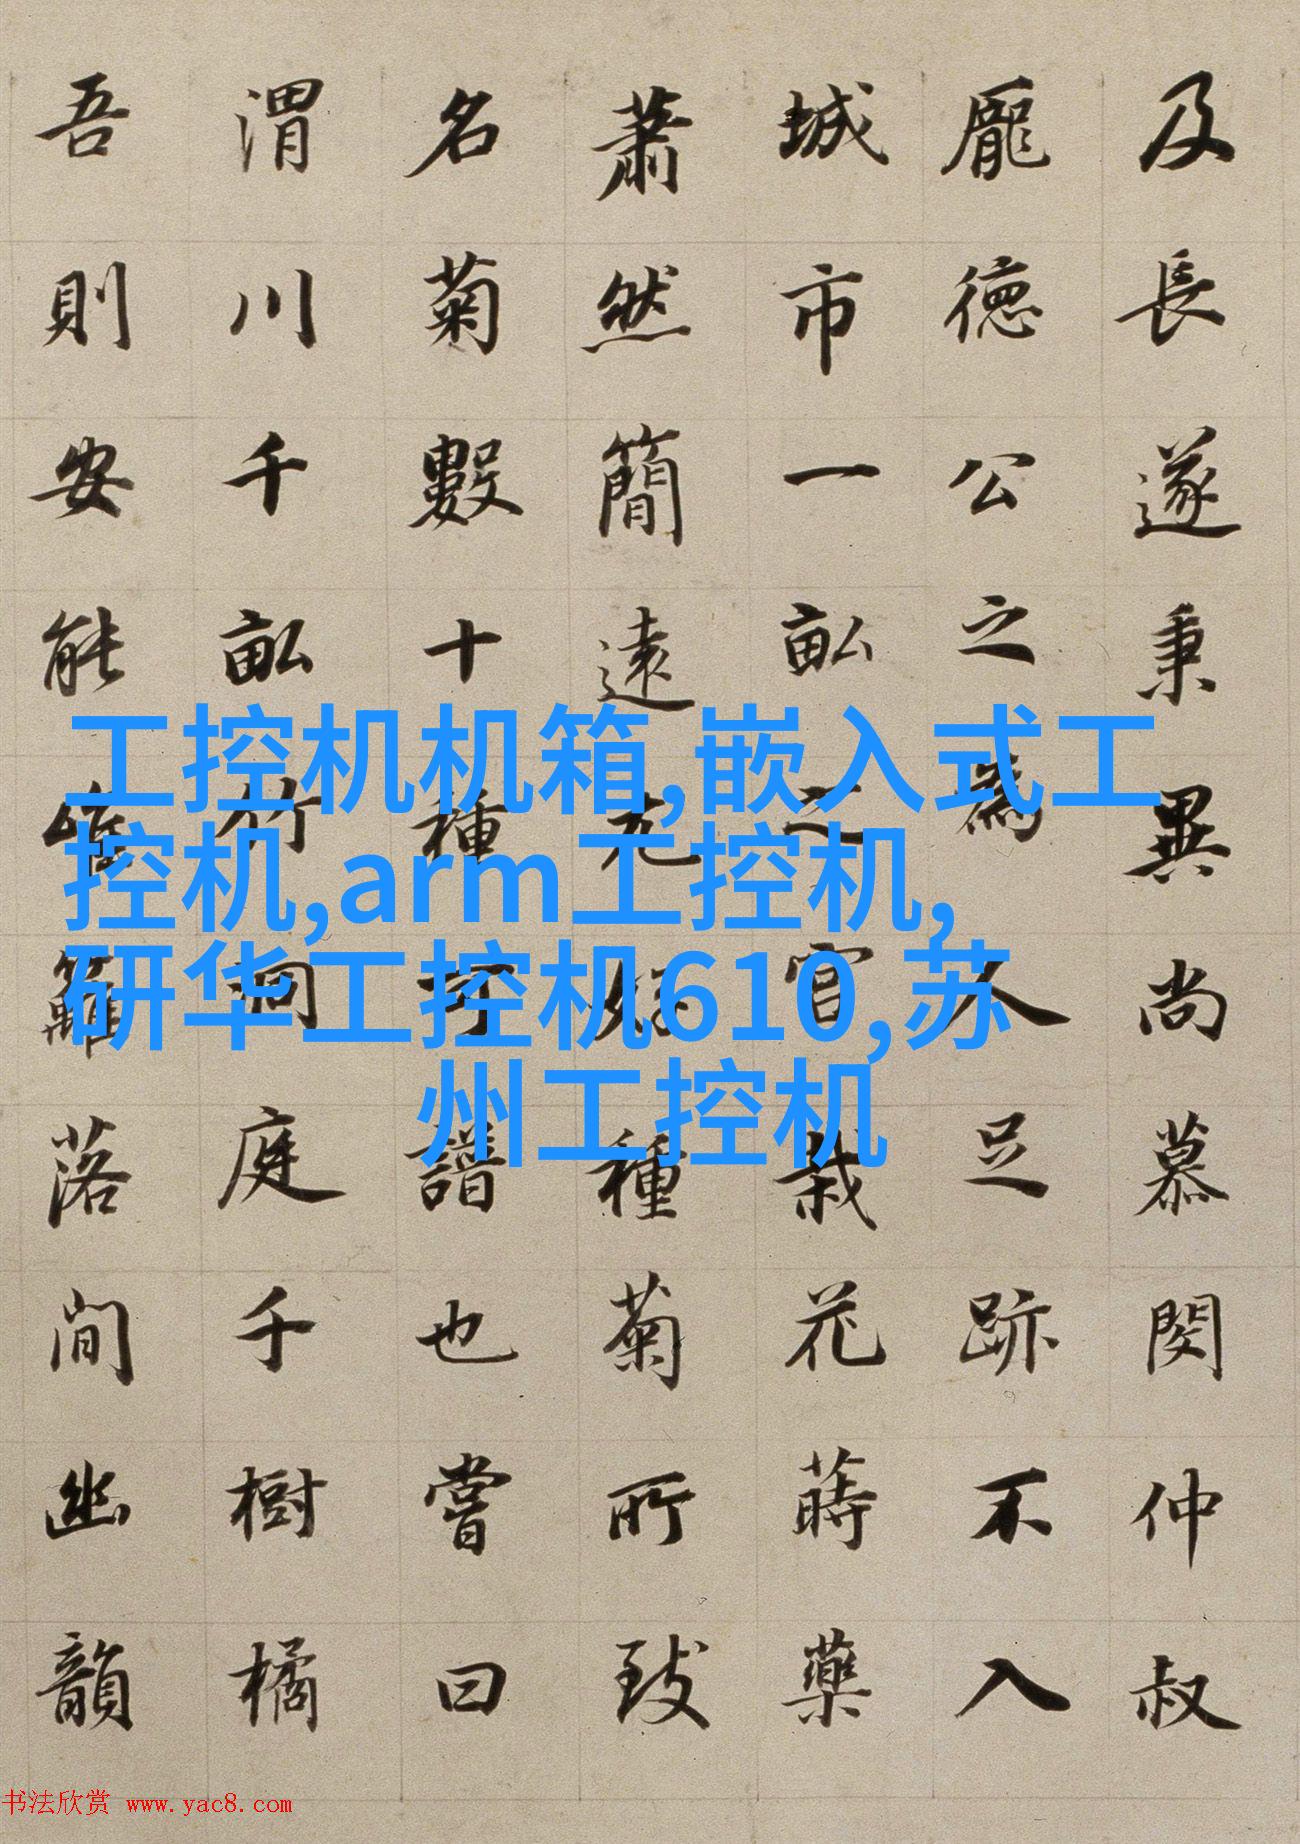 及長遂秉異尚慕閔仲叔
龐徳公之為人足跡不入
城市一畝之宮栽花蒔藥
蕭然簡遠尤好種菊所致
名菊數十種可譜也嘗曰
渭川千畝竹洞庭千樹橘
吾則安能唯籬落間幽韻
工控机机箱,嵌入式工
控机,arm工控机,
研华工控机610,苏
州工控机
书法欣赏 www.yac8.com